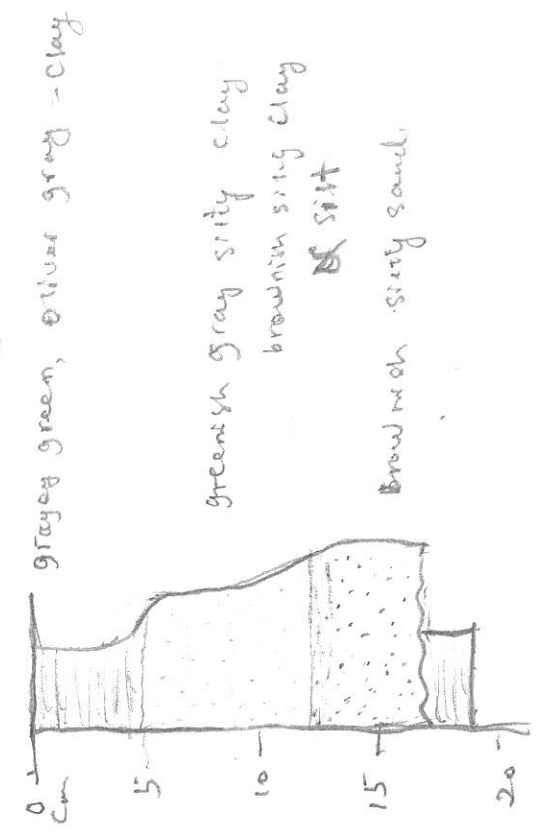 grayey green, oliver gray - clay
greenish gray silty clay
brownish silty clay
silt
brownish silty sand
0
cm
5
10
15
20